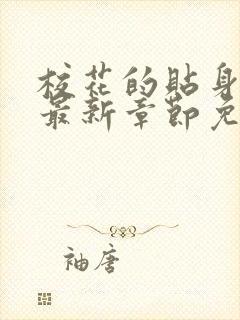 校花的贴身
最新章节免
袖唐